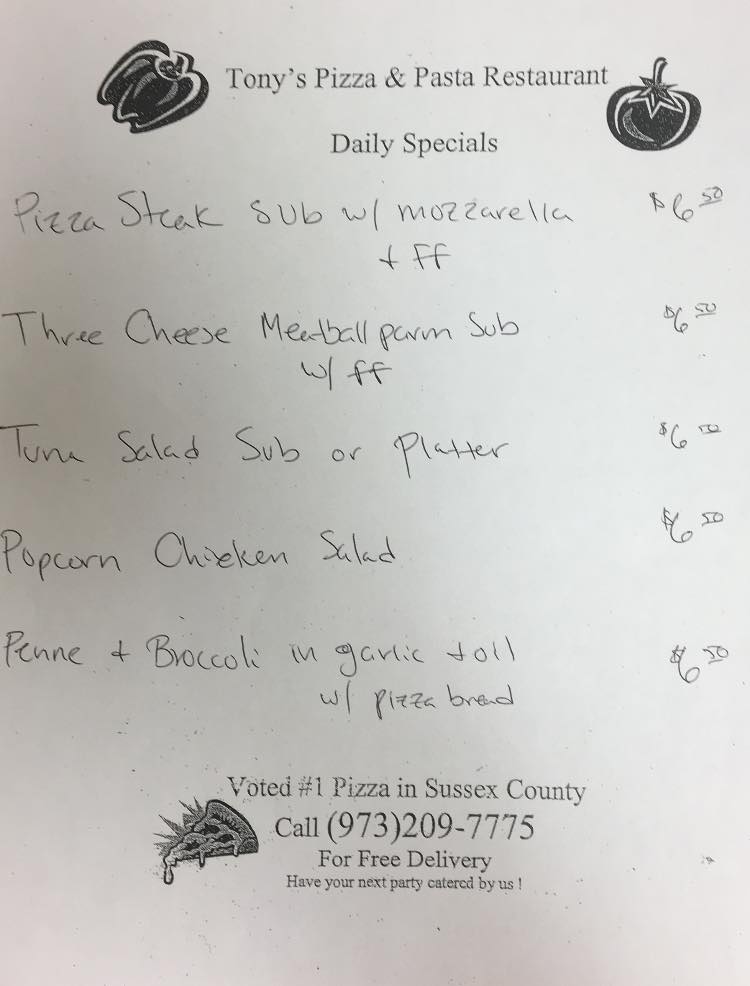 Tony's Pizza & Pasta Restaurant
Daily Specials
Pizza Steak Sub w/ mozzarella $6 50
+ ff
Three Cheese Meatball parm Sub $6 50
w/ ff
Tuna Salad Sub or Platter $6 50
Popcorn Chicken Salad $6 50
Penne + Broccoli in garlic + oil $6 50
w/ pizza bread
Voted #1 Pizza in Sussex County
Call (973)209-7775
For Free Delivery
Have your next party catered by us !